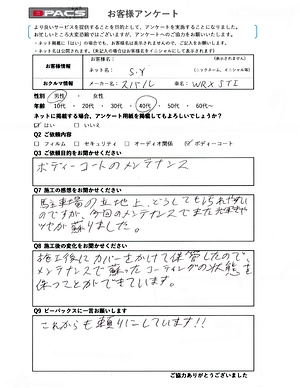 BPACS お客様アンケート
より良いサービスを提供することを目的として、アンケートを実施することになりました。
お忙しいところ大変恐縮ではございますが、アンケートへのご協力をお願いいたします。
・ネット掲載に「はい」の場合でも、お客様名は表示されませんので、ご記入をお願いします。
・ネット名は公開されます。(未記入の場合はお客様名をイニシャルにして表示されます)
お客様情報
お客様名: (表示されません)
ネット名: S.Y (ニックネーム、イニシャル等)
おクルマ情報 メーカー名: スバル 車名: WRX STI
性別 男性 ・ 女性
年齢 10代 ・ 20代 ・ 30代 ・ 40代 ・ 50代 ・ 60代~
ネットに掲載する場合、アンケート用紙を掲載してもよろしいでしょうか?
☑ はい □ いいえ
Q2 ご依頼内容
□ フィルム □ セキュリティ □ オーディオ関係 ☑ ボディーコート
Q3 ご依頼目的をお聞かせください
ボディーコートのメンテナンス
Q7 施工の感想をお聞かせください
駐車場の立地上、どうしてもよごれやすい
のですが、今回のメンテナンスでまた
ツヤが蘇りました。
Q8 施工後の変化をお聞かせください
施工後にカバーをかけて保管したので、
メンテナンスで蘇ったコーティングの状態を
保つことができています。
Q9 ビーパックスに一言お願いします
これからも頼りにしています!!
ご協力ありがとうございました